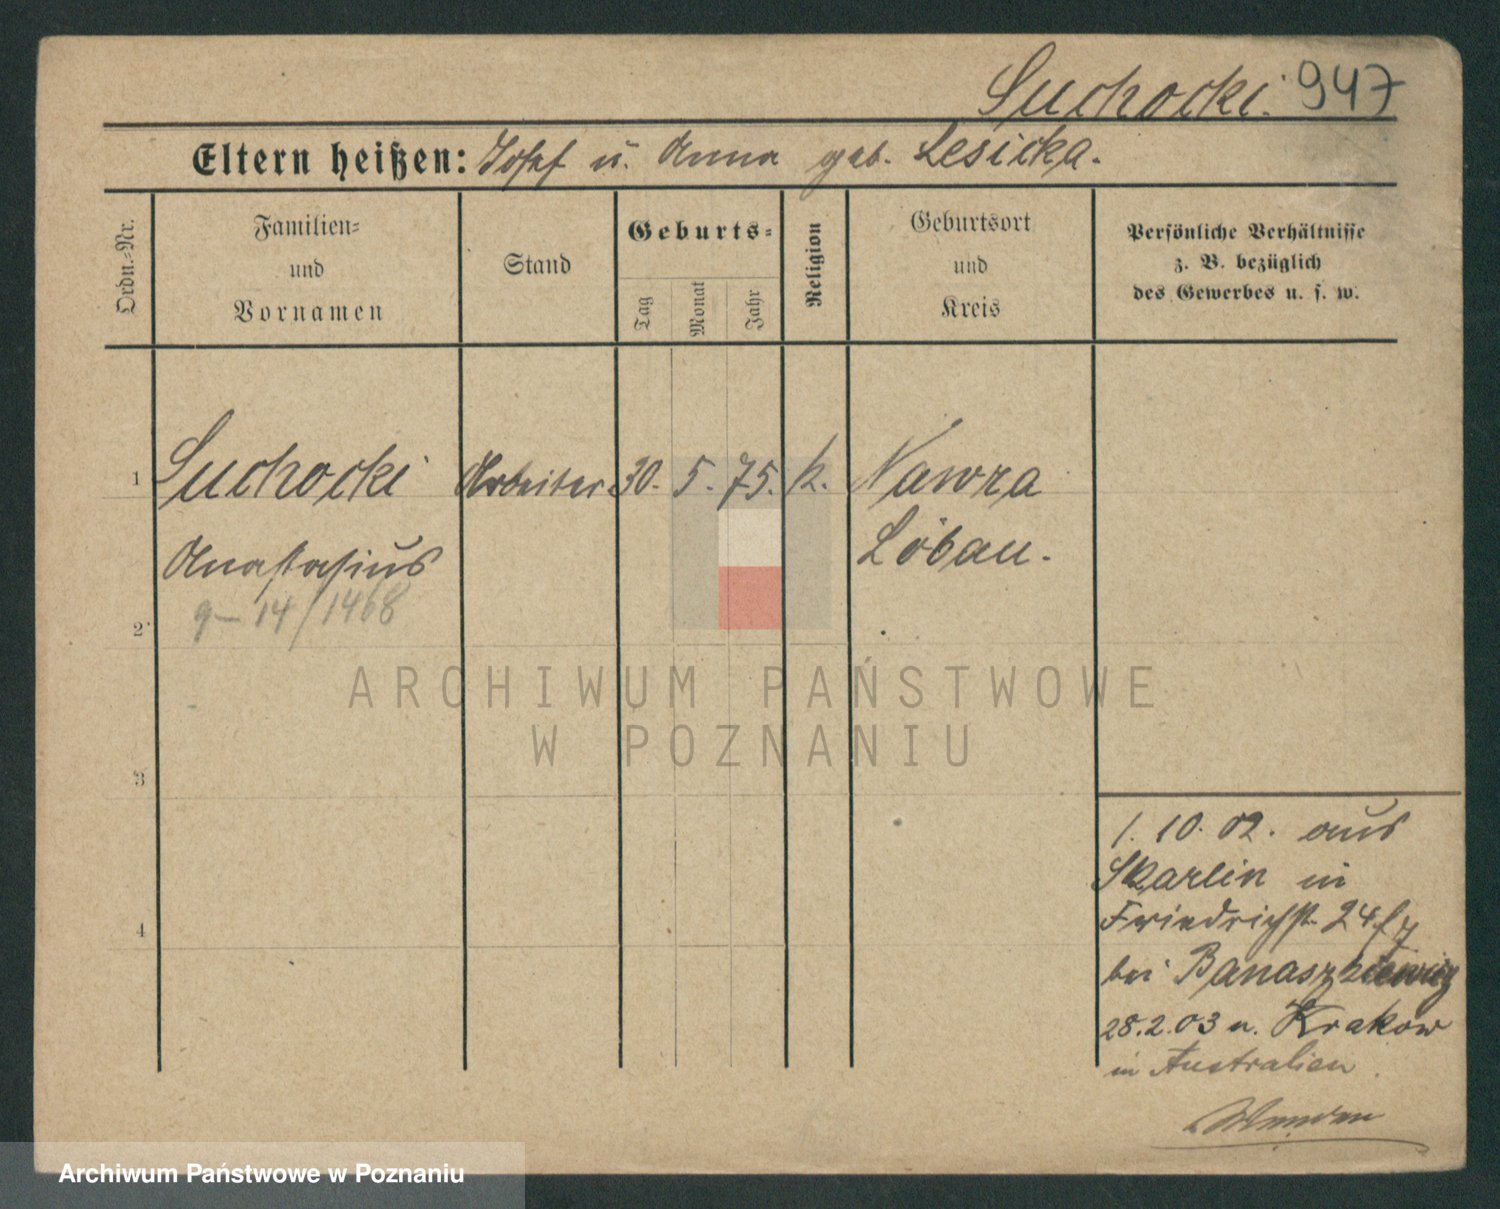 Suchocki. 947
Eltern heißen: Josef u. Anna geb. Lesicka.
Ordn.-Nr.
Familien- und Vornamen
Stand
Geburts-
Tag
Monat
Jahr
Religion
Geburtsort und Kreis
Persönliche Verhältnisse
z. B. bezüglich
des Gewerbes u. s. w.
1 Suchocki Arbeiter 30. 5. 75. k. Nawra
Anastasius Löbau.
g- 14/1468
2
3
4
1. 10. 02. aus
Skarlin in
Friedrichst. 24
bei Banaszkiewicz
28.2.03 n. Krakow
in Australien
ARCHIWUM PAŃSTWOWE
W POZNANIU
Archiwum Państwowe w Poznaniu